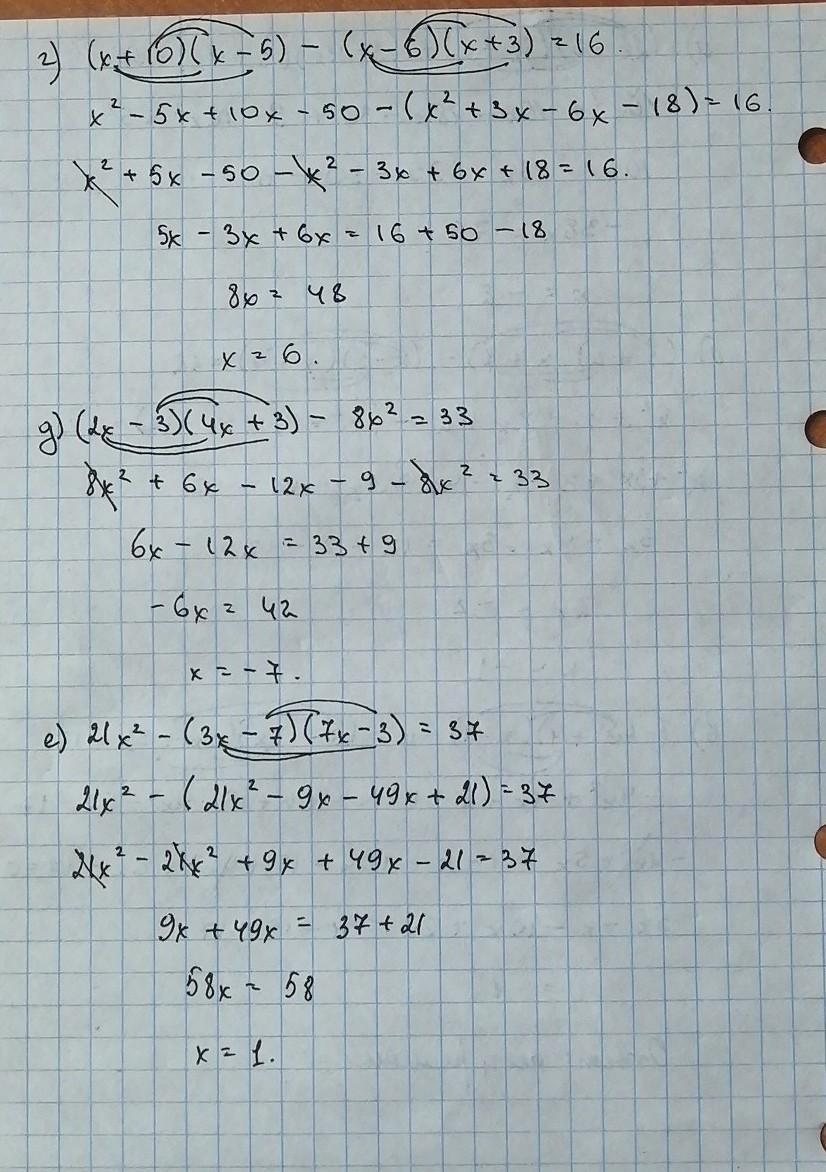 г) (x + 10)(x - 5) - (x - 6)(x + 3) = 16.
x² - 5x + 10x - 50 - (x² + 3x - 6x - 18) = 16.
x² + 5x - 50 - x² - 3x + 6x + 18 = 16.
5x - 3x + 6x = 16 + 50 - 18
8x = 48
x = 6.
д) (2x - 3)(4x + 3) - 8x² = 33
8x² + 6x - 12x - 9 - 8x² = 33
6x - 12x = 33 + 9
-6x = 42
x = -7.
е) 21x² - (3x - 7)(7x - 3) = 37
21x² - (21x² - 9x - 49x + 21) = 37
21x² - 21x² + 9x + 49x - 21 = 37
9x + 49x = 37 + 21
58x = 58
x = 1.